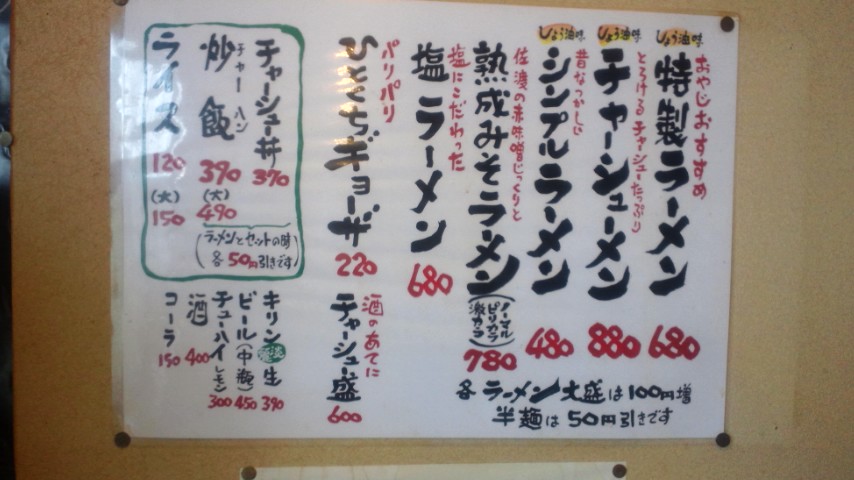 おやじおすすめ
しょう油味
特製ラーメン
680
とろけるチャーシューたっぷり
しょう油味
チャーシューメン
880
昔なつかしい
しょう油味
シンプルラーメン
480
佐渡の赤味噌じっくりと
熟成みそラーメン
(ノーマル
ピリカラ
激カラ)
780
塩にこだわった
塩ラーメン
680
各ラーメン大盛は100円増
半麺は50円引きです
パリパリ
ひとくちギョーザ
220
酒のあてに
チャーシュー盛
600
チャーシュー丼
370
チャーハン
炒飯
390
(大)
490
ライス
120
(大)
150
(ラーメンとセットの時
各50円引きです)
キリン 生
390
ビール(中瓶)
450
チューハイレモン
300
酒
400
コーラ
150